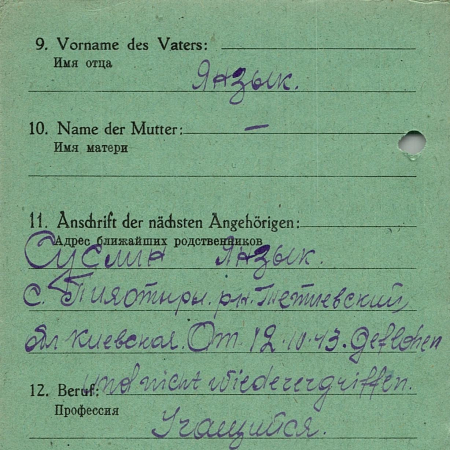 9. Vorname des Vaters:
Имя отца
Язык.
10. Name der Mutter: —
Имя матери
11. Anschrift der nächsten Angehörigen:
Адрес ближайших родственников
Язык.
с. рн. Тетиевский,
обл Киевская. От 12.10.43. Geflohen
und nicht wiederergriffen.
12. Beruf:
Профессия
Учащийся.